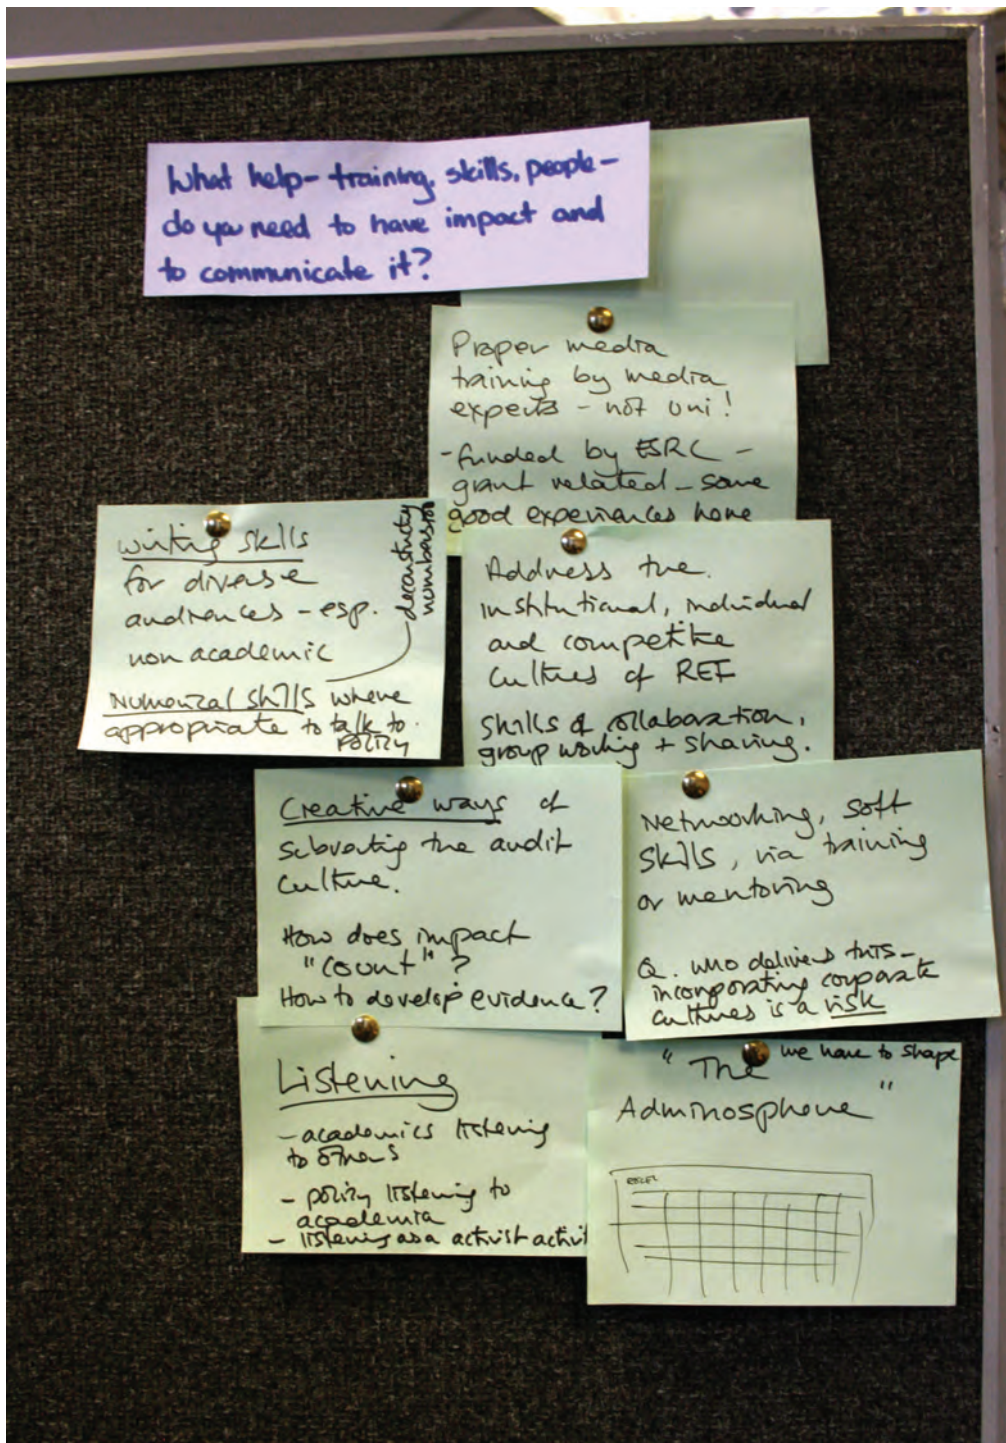 What help - training, skills, people -
do you need to have impact and
to communicate it?
Proper media
training by media
experts - not uni!
- funded by ESRC -
grant related - some
good experiences here
Writing skills
for diverse
audiences - esp.
non academic
Numerical skills where
appropriate to talk to
policy
Address the
institutional, individual
and competitive
cultures of REF
Skills of collaboration,
group working + sharing.
Creative ways of
subverting the audit
culture.
How does impact
"count"?
How to develop evidence?
Networking, soft
skills, via training
or mentoring
Q. who delivers this -
incorporating corporate
cultures is a risk
Listening
- academics listening
to others
- policy listening to
academia
- listening as a activist activi
we have to shape
"The
Adminosphere"